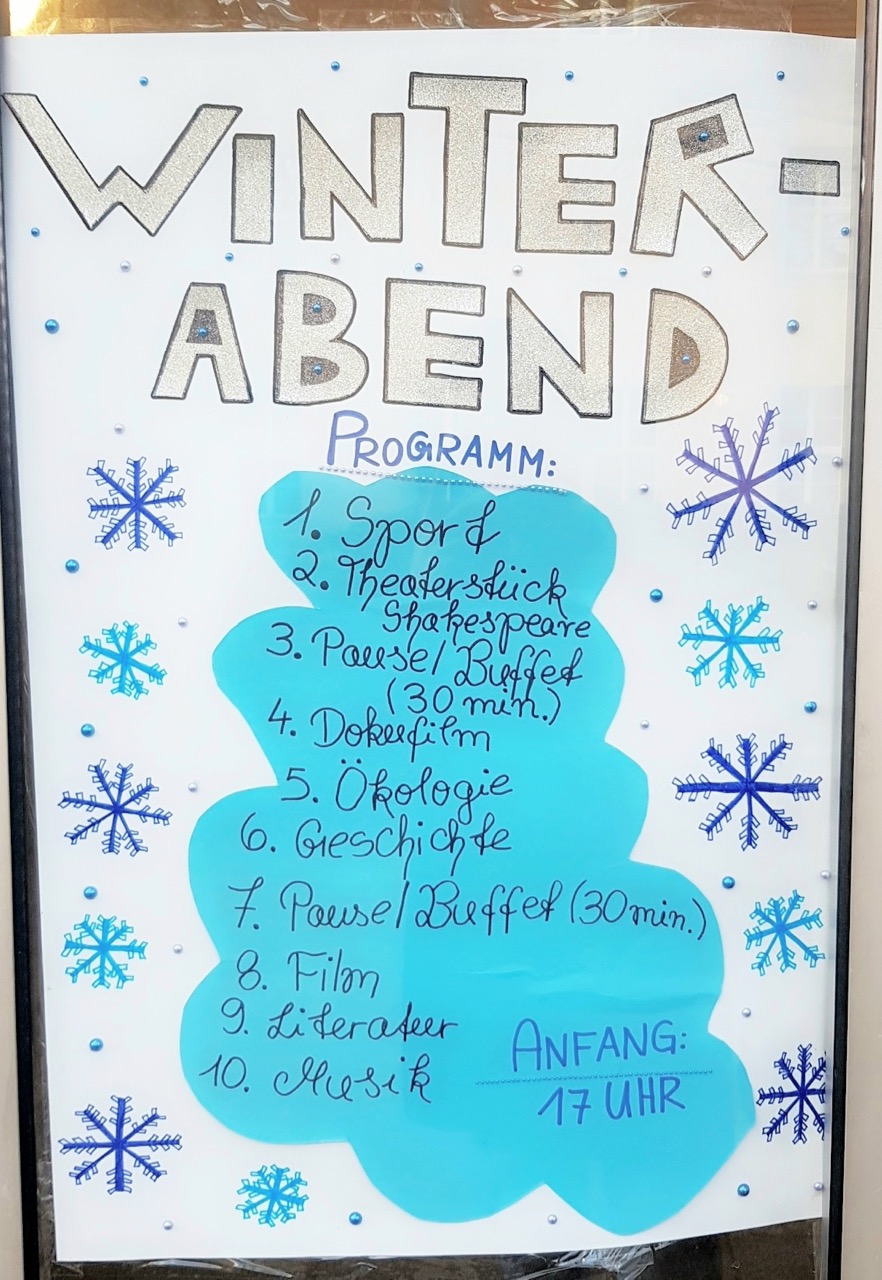 WINTER-
ABEND
PROGRAMM:
1. Sport
2. Theaterstück
Shakespeare
3. Pause/Buffet
(30 min.)
4. Dokufilm
5. Ökologie
6. Geschichte
7. Pause/Buffet (30 min.)
8. Film
9. Literatur
10. Musik
ANFANG:
17 UHR